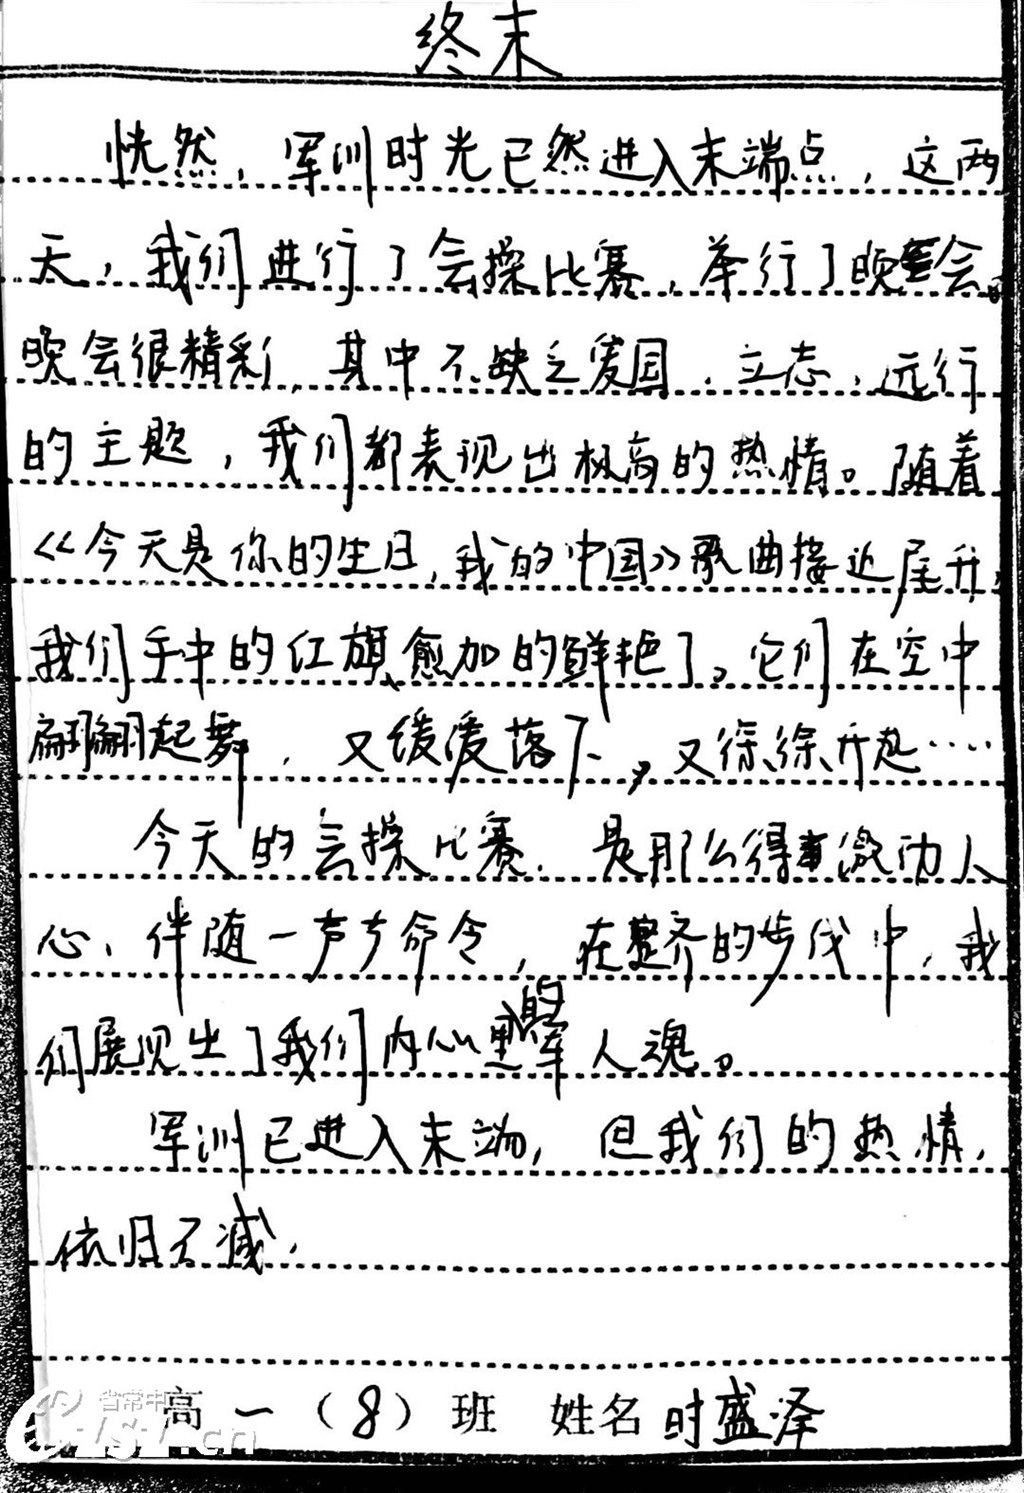 终末
恍然，军训时光已然进入末端点，这两
天，我们进行了会操比赛，举行了晚会。
晚会很精彩，其中不缺乏爱国、立志、远行
的主题，我们都表现出极高的热情。随着
《今天是你的生日，我的中国》歌曲接近尾升，
我们手中的红旗愈加的鲜艳了。它们在空中
翩翩起舞，又缓缓落下，又徐徐升起……
今天的会操比赛，是那么得激动人
心，伴随一声声命令，在整齐的步伐中，我
们展现出了我们内心里的军人魂。
军训已进入末端，但我们的热情，
依旧不减，
高一（8）班 姓名 时盛泽
省常中